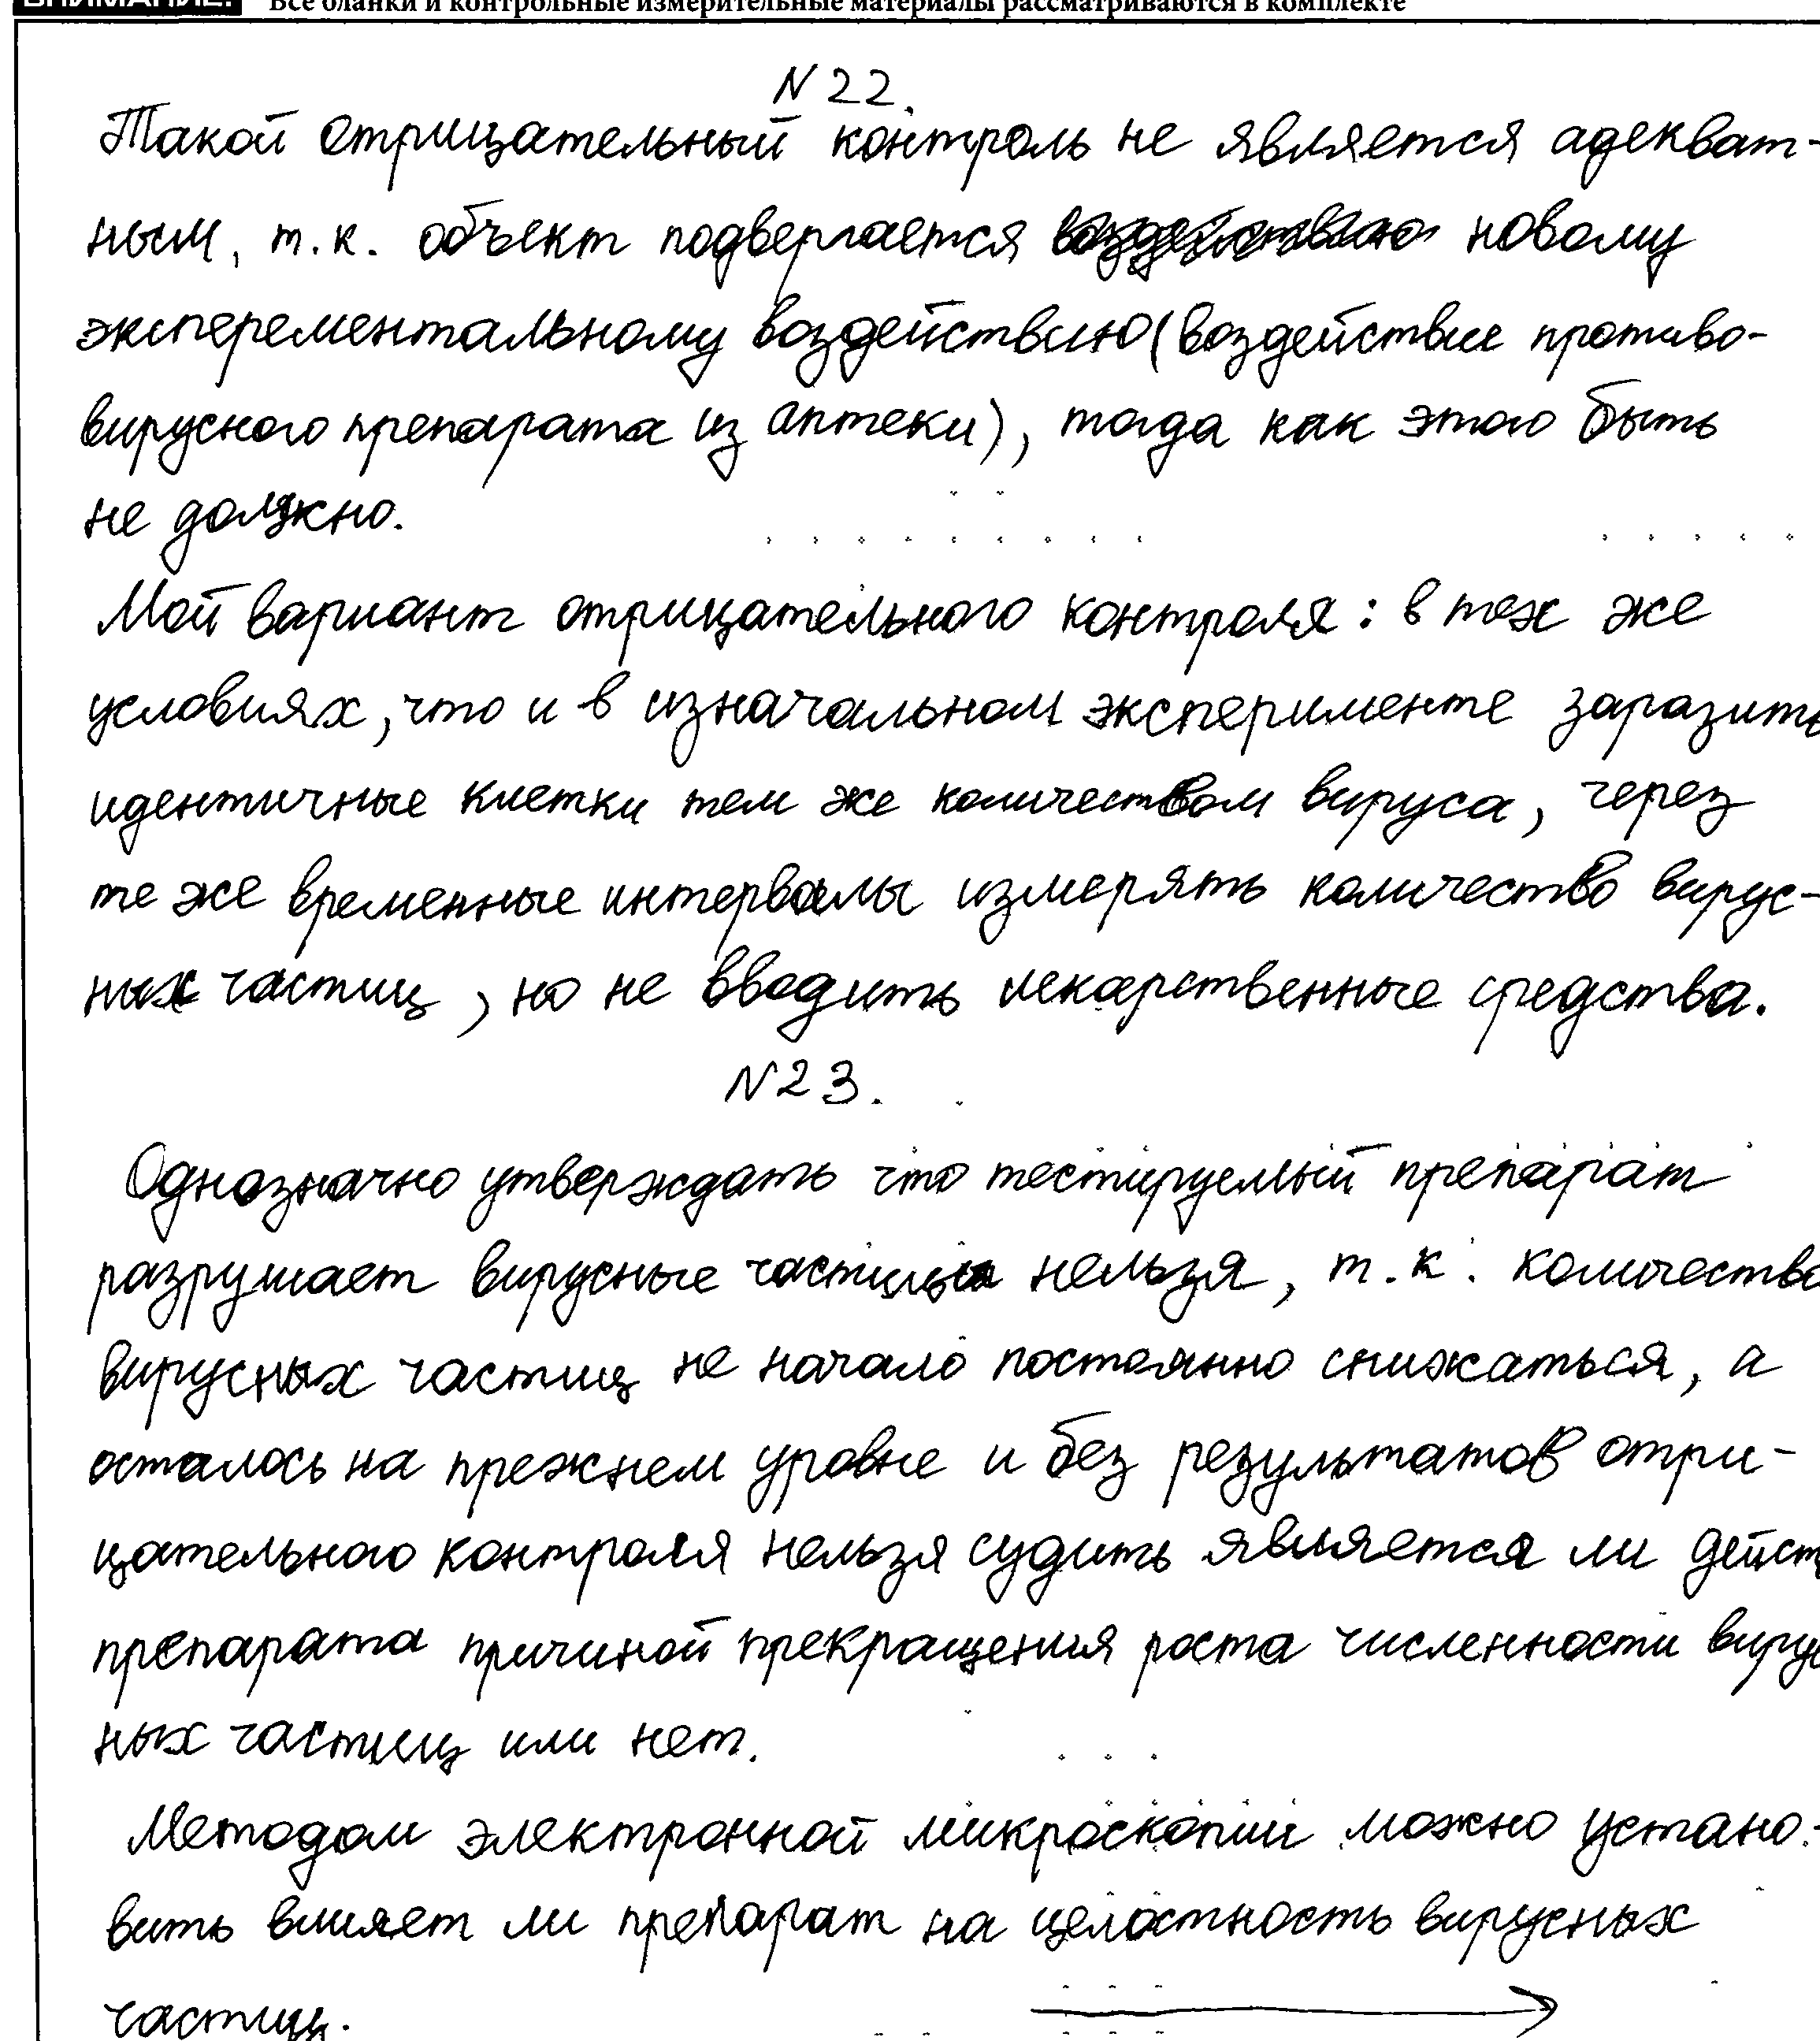 ВНИМАНИЕ! Все бланки и контрольные измерительные материалы рассматриваются в комплекте
N 22.
Такой отрицательный контроль не является адекват-
ным, т.к. объект подвергается новому
эксперементальному воздействию (воздействие противо-
вирусного препарата из аптеки), тогда как этого быть
не должно.
Мой вариант отрицательного контроля: в тех же
условиях, что и в изначальном эксперименте заразить
идентичные клетки тем же количеством вируса, через
те же временные интервалы измерять количество вирус-
ных частиц, но не вводить лекарственные средства.
N 23.
Однозначно утверждать что тестируемый препарат
разрушает вирусные частицы нельзя, т.к. количество
вирусных частиц не начало постоянно снижаться, а
осталось на прежнем уровне и без результатов отри-
цательного контроля нельзя судить является ли дейст
препарата причиной прекращения роста численности вирус
ных частиц или нет.
Методом электронной микроскопии можно устано-
вить влияет ли препарат на целостность вирусных
частиц.